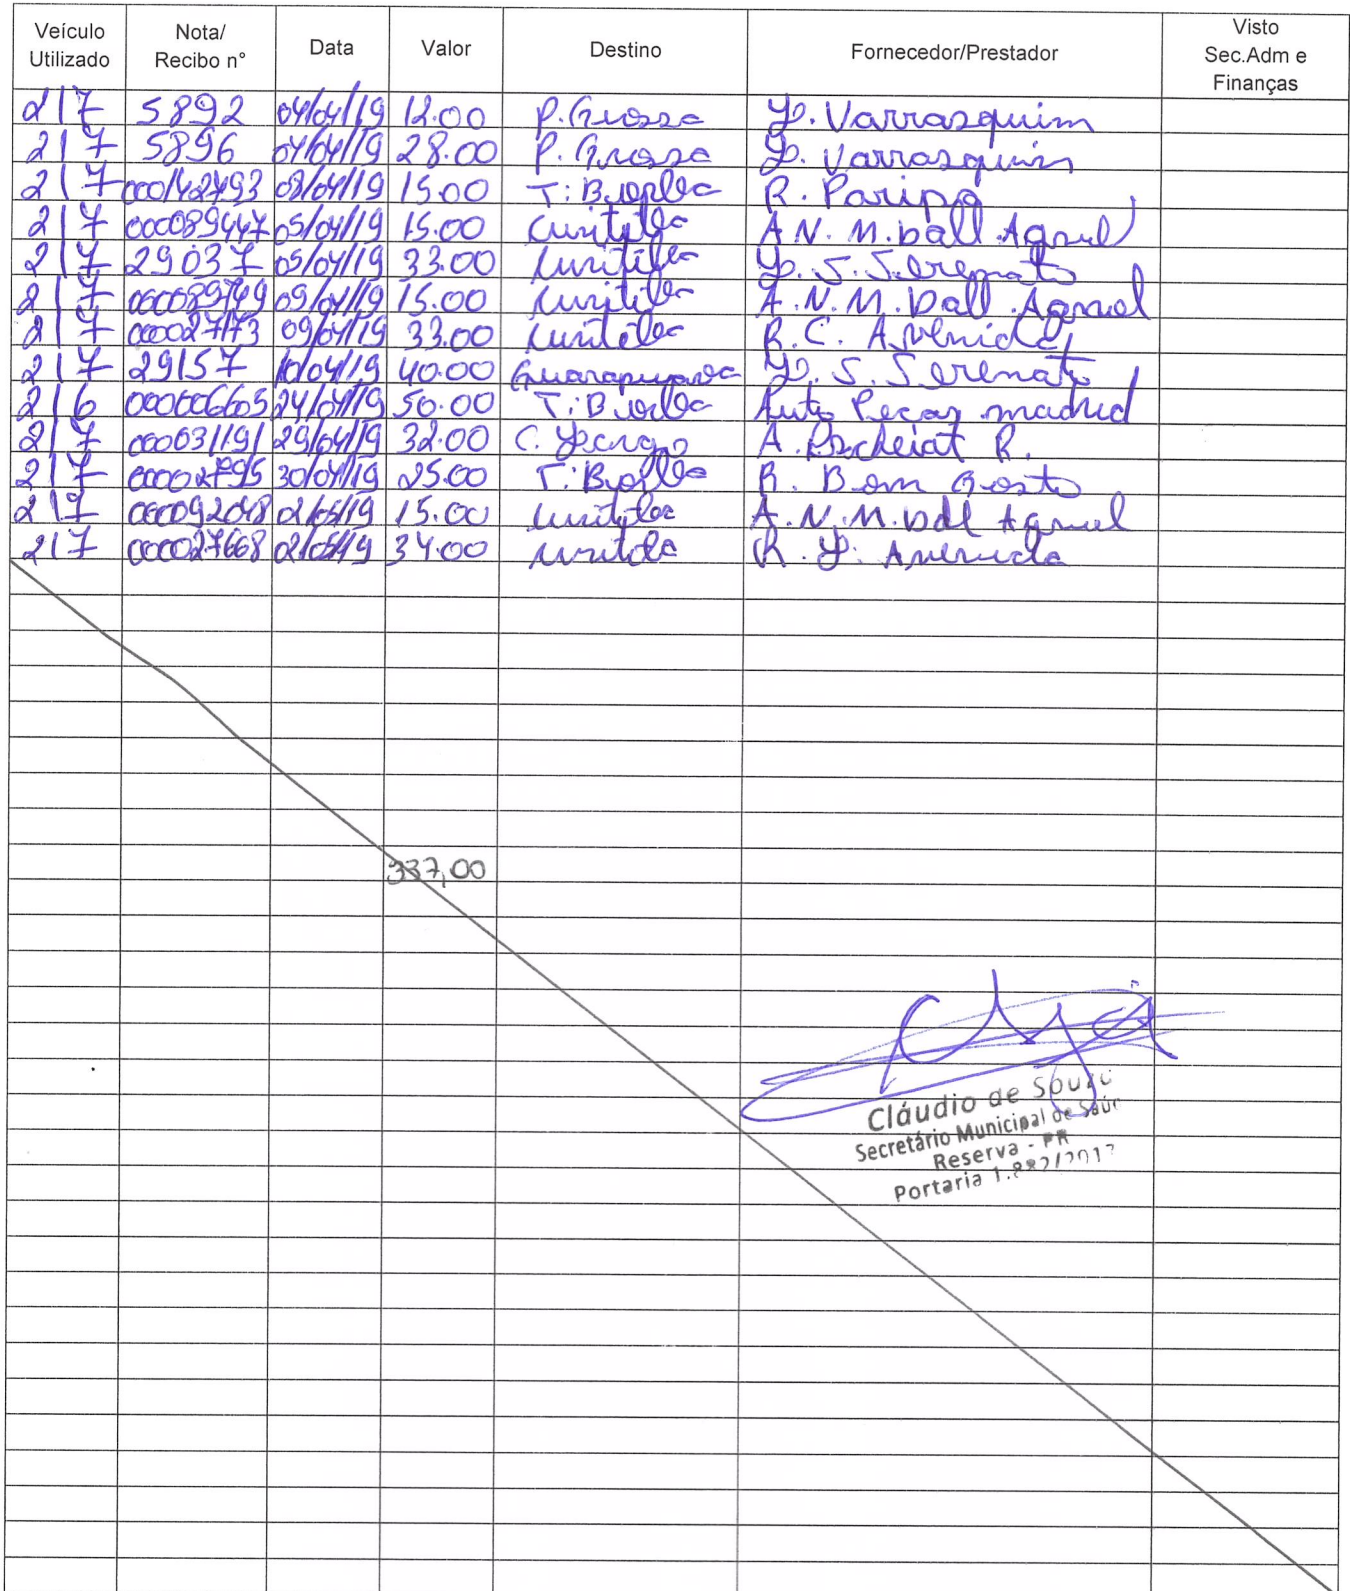 Veículo Utilizado Nota/ Recibo n° Data Valor Destino Fornecedor/Prestador Visto Sec.Adm e Finanças
217 5892 04/04/19 12.00 P. Grossa Varrasquim
217 5896 04/04/19 28.00 P. Grossa Varrasquim
217 000142493 15.00 R.
217 000089447 05/04/19 15.00 Curitiba A N. M. ball Agnel
217 29037 05/04/19 33.00 Curitiba S.
217 09/04/19 15.00 Curitiba A. N. M. ball Agnel
217 09/04/19 33.00 Curitiba R. C. Avenida
217 29157 10/04/19 40.00 Guarapuava S.
216 000006605 24/04/19 50.00 Auto Pecas madrid
217 000031191 29/04/19 32.00 C. A. R.
217 30/04/19 25.00 R. Bom Gosto
217 000092048 02/05/19 15.00 Curitiba A. N. M. Agnel
217 000027668 02/05/19 34.00 R. Avenida
337,00
Cláudio de Souza
Secretário Municipal de
Reserva - PR
Portaria